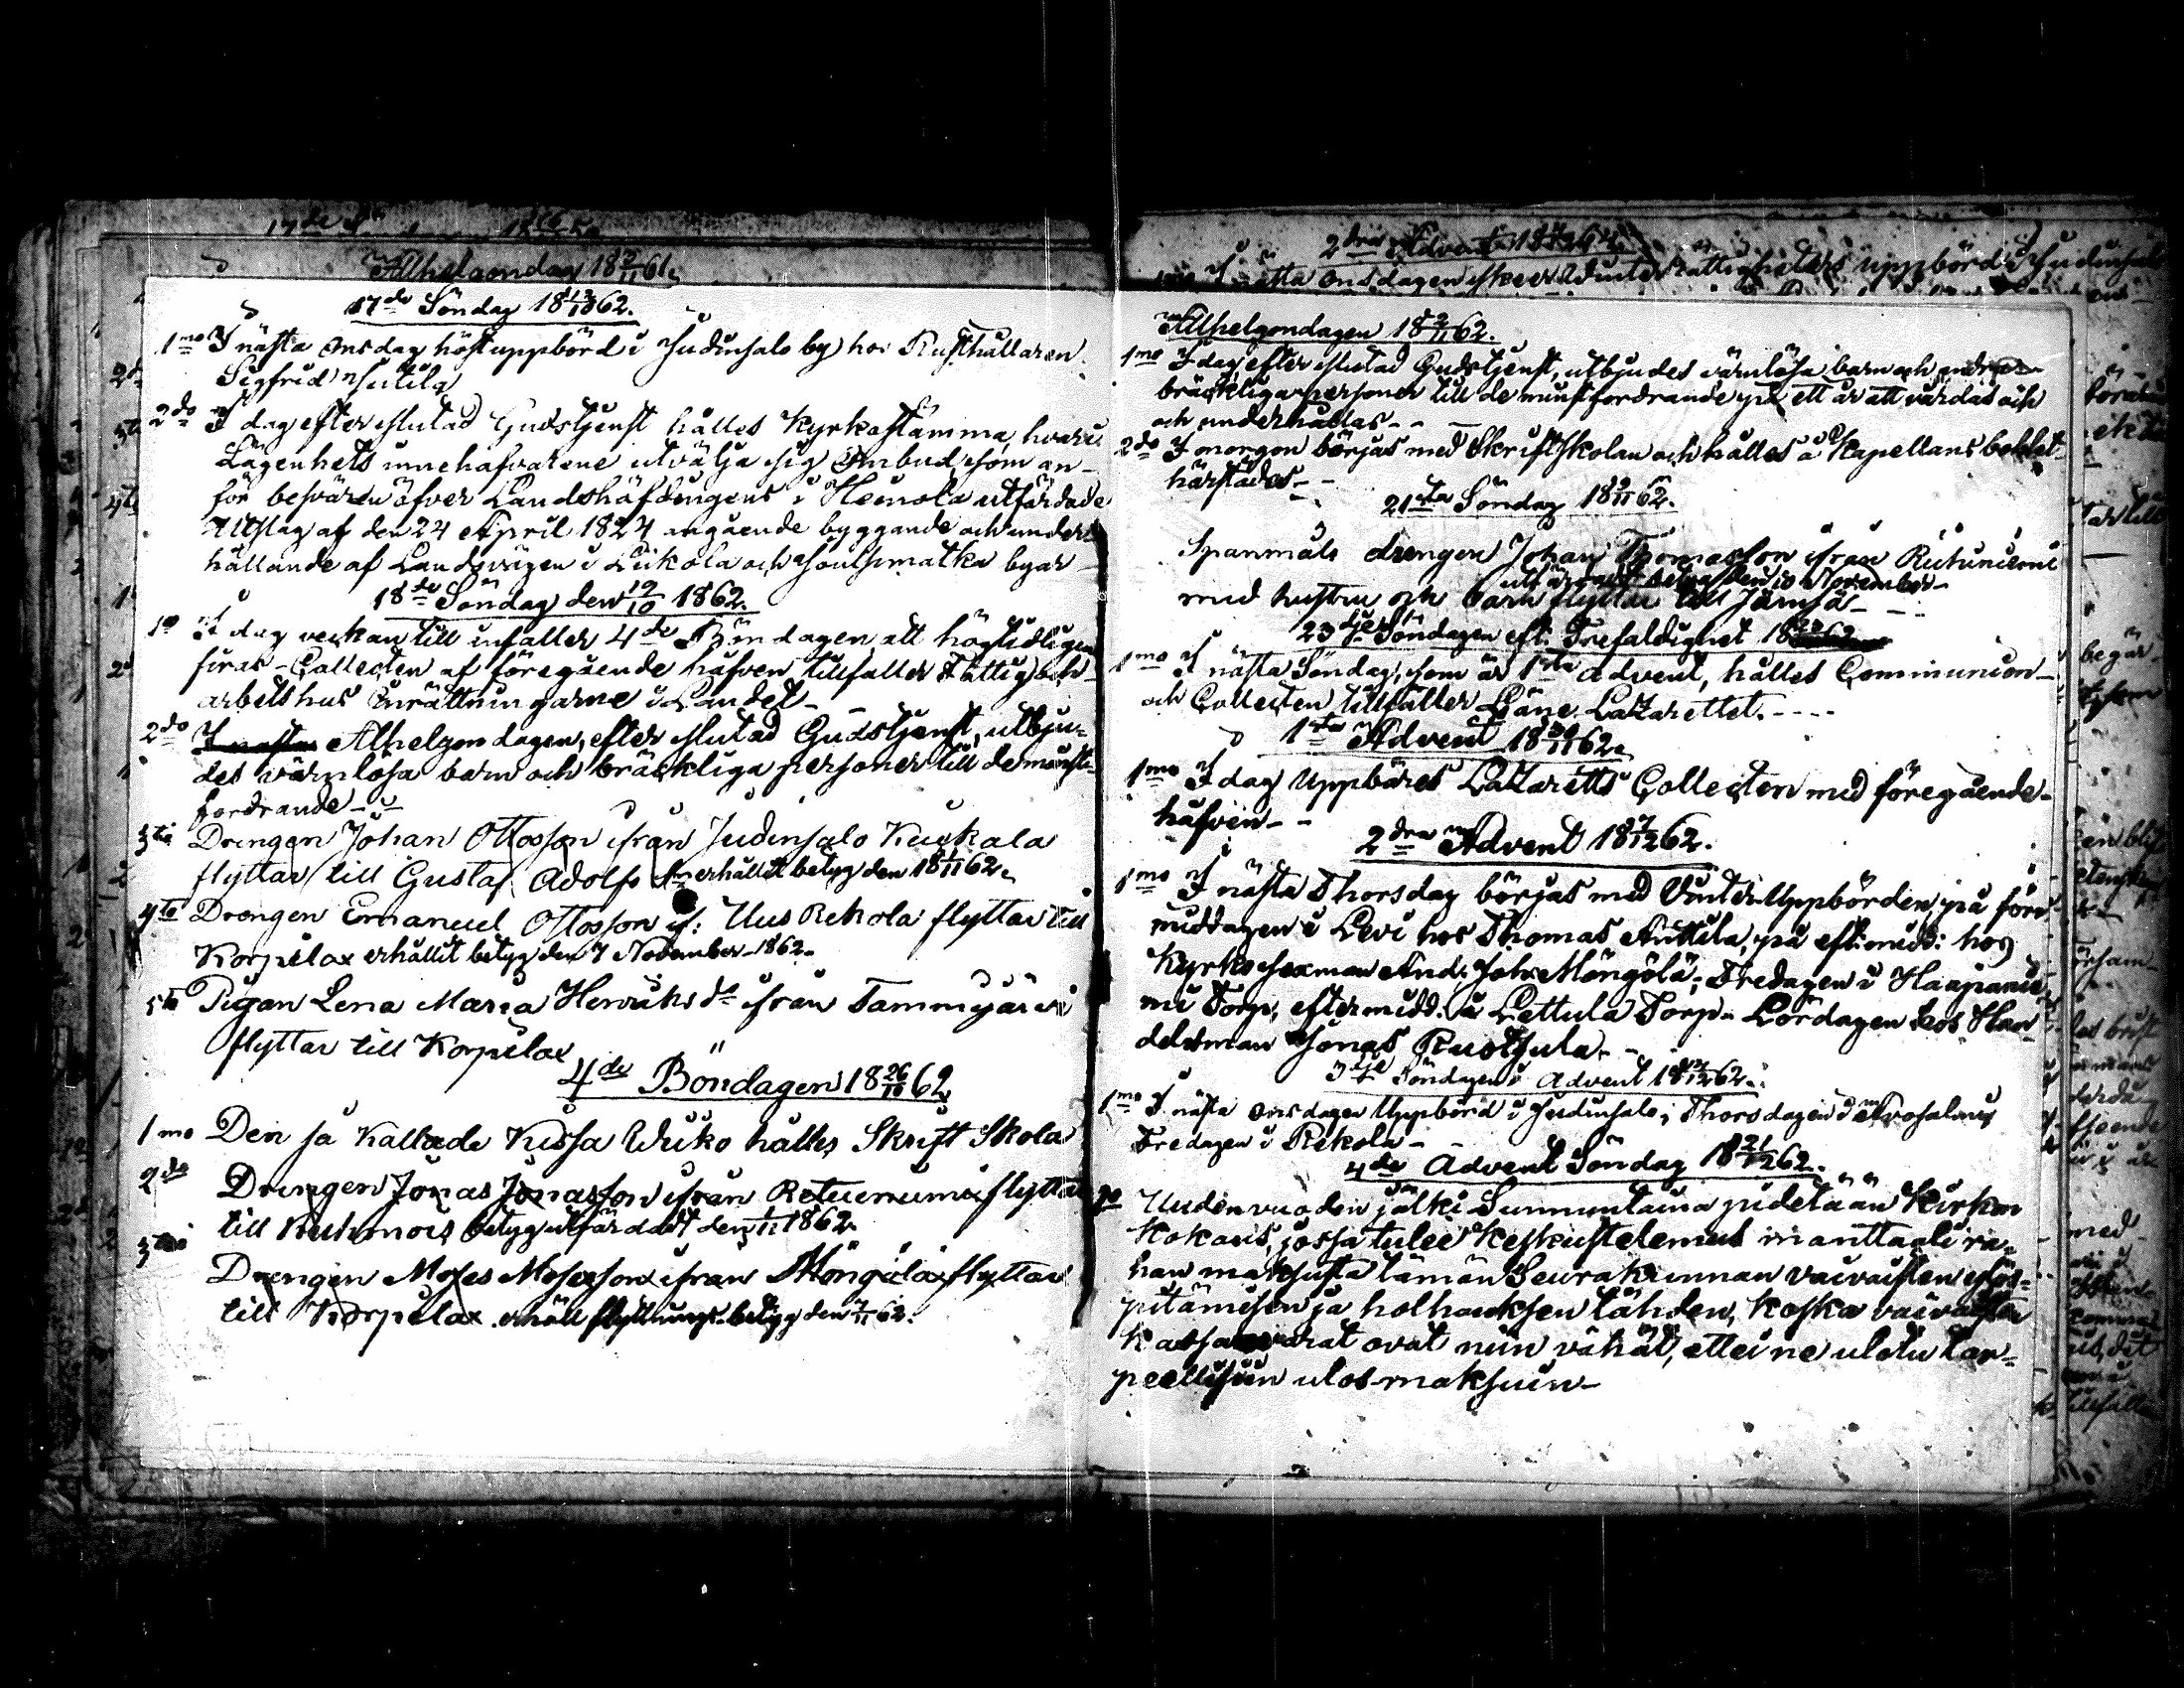 Alhelgondag 18 2/11 61.
17de Söndag 18 12/10 62.
1mo I nästa Onsdag höstuppbörd i Judinsalo by hos Rusthållaren
Sigfrid
2do I dag efter slutad Gudstjenst hålles Kyrkostämma, hvari
Lägenhets innehafvarene utvälja sig Ombud som an-
för besvären öfver Landshöfdingens i Heinola utfärdade
Utslag af den 24 April 1824 angående byggande och under-
hållande af Landsvägen i Leikola och Joutsimatka byar
18de Söndag den 19/10 1862.
1o I dag veckan till infaller 4de Böndagen att högtidligen
firas - Collecten af föregående håfven tillfaller Fattig och
arbetshus Inrättningarne i Landet -
2do I nästa Alhelgon dagen, efter slutad Gudstjenst, utbju-
des värnlösa barn och bräckliga personer till de minst
fordrande -
3tio Drengen Johan Ottosson ifrån Judinsalo Kuckala
flyttar till Gustaf Adolfs erhållit betyg den 18 1/11 62.
4to Drengen Emanuel Ottosson if: Uus Rekola flyttar till
Korpilax erhållit betyg den 7 November 1862.
5to Pigan Lena Maria Henriksdr ifrån Tammijärvi
flyttar till Korpilax
4de Böndagen 18 26/10 62
1mo Den så kallade Kissa Wiiko hålles Skrift Skola
2do Drengen Jonas Jonasson ifrån flyttar
till Kuhmois betyg utfärdadt den 1/11 1862.
3tio
Drengen Moses Mosesson ifrån Möngölä flyttar
till Korpilax. erhöll flyttnings-betyg den 62.
2dra Advent 18 62
nästa Onsdagen sker Winter rättigheters uppbörd i Judinsalo
Alhelgondagen 18 2/11 62.
1mo I dag efter slutad Gudstjenst, utbjudes värnlösa barn och andra
bräckliga personer till de minst fordrande på ett år att vårdas och
och underhållas - -
2do I morgon börjas med Skriftskolan och hålles å Kapellans bohlet
härstädes - -
21sta Söndag 18 9/11 62.
Spanmåls drengen Johan Thomasson ifrån
utfärdadt betyg den 10 November -
med hustru och barn flyttar till Jämsä -
23dje Söndagen eft. Trefaldighet 18 62
1mo I nästa Söndag, som är 1sta Advent, hålles Communion -
och Collecten tillfaller Läne Lazarettet. - - - -
1sta Advent 18 30/11 62.
1mo I dag Uppbäres Lazaretts Collecten med föregående -
håfven - -
2dra Advent 18 7/12 62.
1mo I nästa Thorsdag börjas med Vinter-Uppbörden, på före
middagen i Levi hos Thomas Anttila, på eft.midd: hos
Kyrko sexman And: Joh: Möngölä; Fredagen i Haapanie-
mi Torp, eftermidd. å Lettula Torp - Lördagen hos Han-
delsman Jonas Ruotsula - -
3dje Söndagen i Advent 18 14/12 62.
1mo I nästa Onsdagen Uppbörd i Judinsalo; Thorsdagen i
Fredagen i Rekola - -
4de Advent Söndag 18 21/12 62.
1o Uuden vuoden jälki Sunnuntaina pidetään Kirkon
Kokous, jossa tulee keskustelemus manttaali ra-
han maksusta tämän Seurakunnan vaivaisten ylös-
pitämisen ja holhouksen tähden, koska vaivaisten
Kassa varat ovat niin vähät, ettei ne uletu tar-
peellisiin ulos-maksuin -